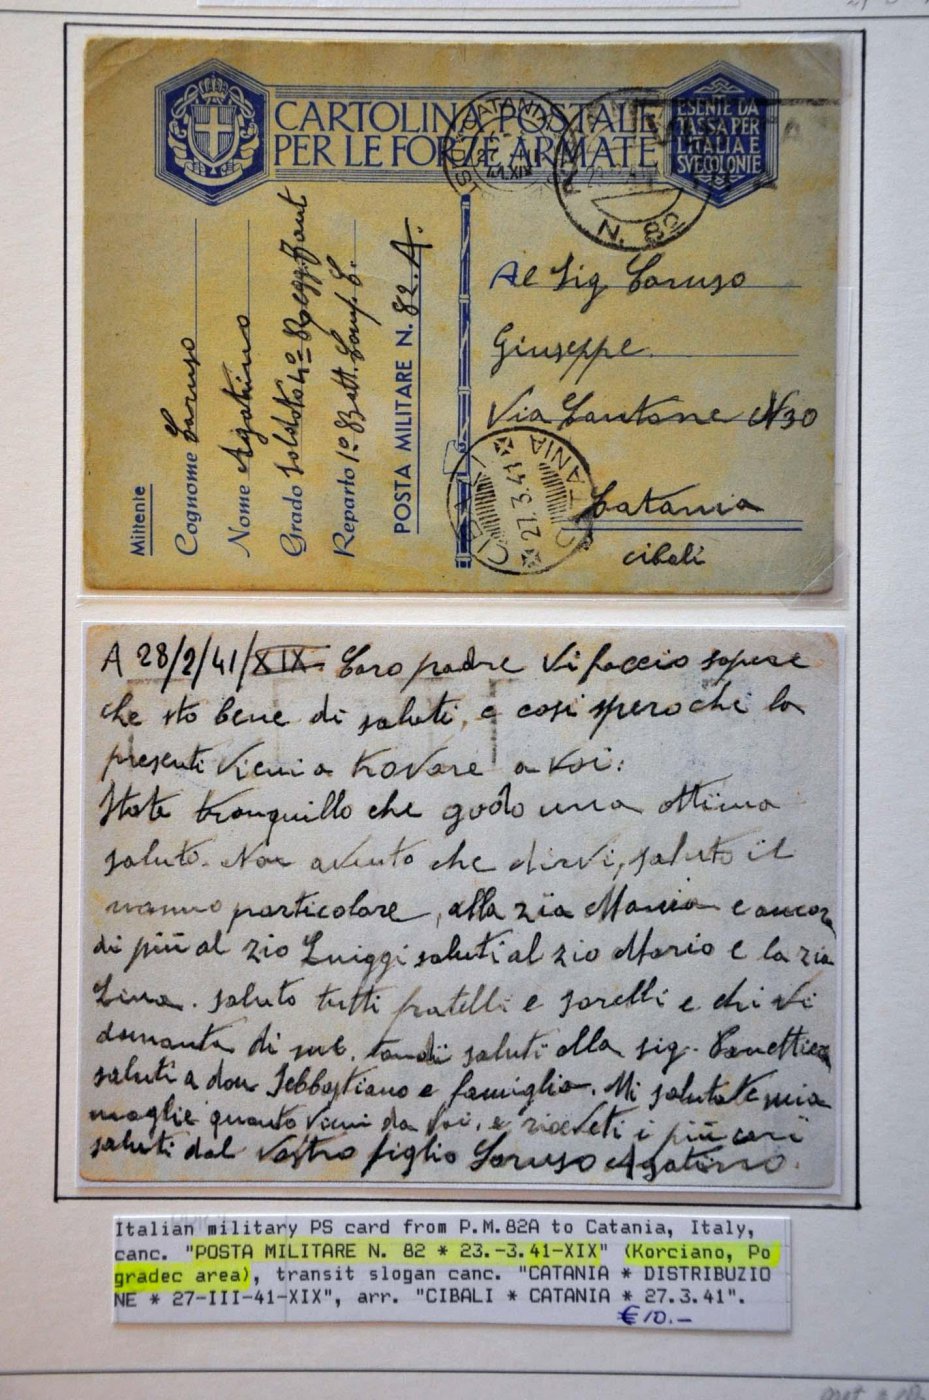 CARTOLINA POSTALE
PER LE FORZE ARMATE
ESENTE DA
TASSA PER
L'ITALIA E
SUE COLONIE
N. 82
Mittente
Cognome Caruso
Nome Agatino
Grado Soldato 4º Regg. Fant
Reparto 1º Batt. Comp. C.
POSTA MILITARE N. 82.A.
Al Sig Caruso
Giuseppe
Via Cantone N30
Catania
cibali
CIBALI
27.3.41
CATANIA
A 28/2/41/XIX Caro padre Vi faccio sapere
che sto bene di saluti, e cosi spero che la
presenti vieni a trovare a voi:
State tranquillo che godo una ottima
saluto. Non avento che dirvi, saluto il
nonno particolare, alla zia Maria e ancora
di più al zio Luiggi saluti al zio Mario e la zia
Lina. saluto tutti fratelli e sorelli e chi Vi
domanta di me. tandi saluti alla sig.
saluti a don Sebbastiano e famiglia. Mi salutate mia
moglie quanto vieni da voi. e riceveti i più cari
saluti dal vostro figlio Caruso Agatino.
Italian military PS card from P.M.82A to Catania, Italy,
canc. "POSTA MILITARE N. 82 * 23.-3.41-XIX" (Korciano, Po
gradec area), transit slogan canc. "CATANIA * DISTRIBUZIO
NE * 27-III-41-XIX", arr. "CIBALI * CATANIA * 27.3.41".
€10.-